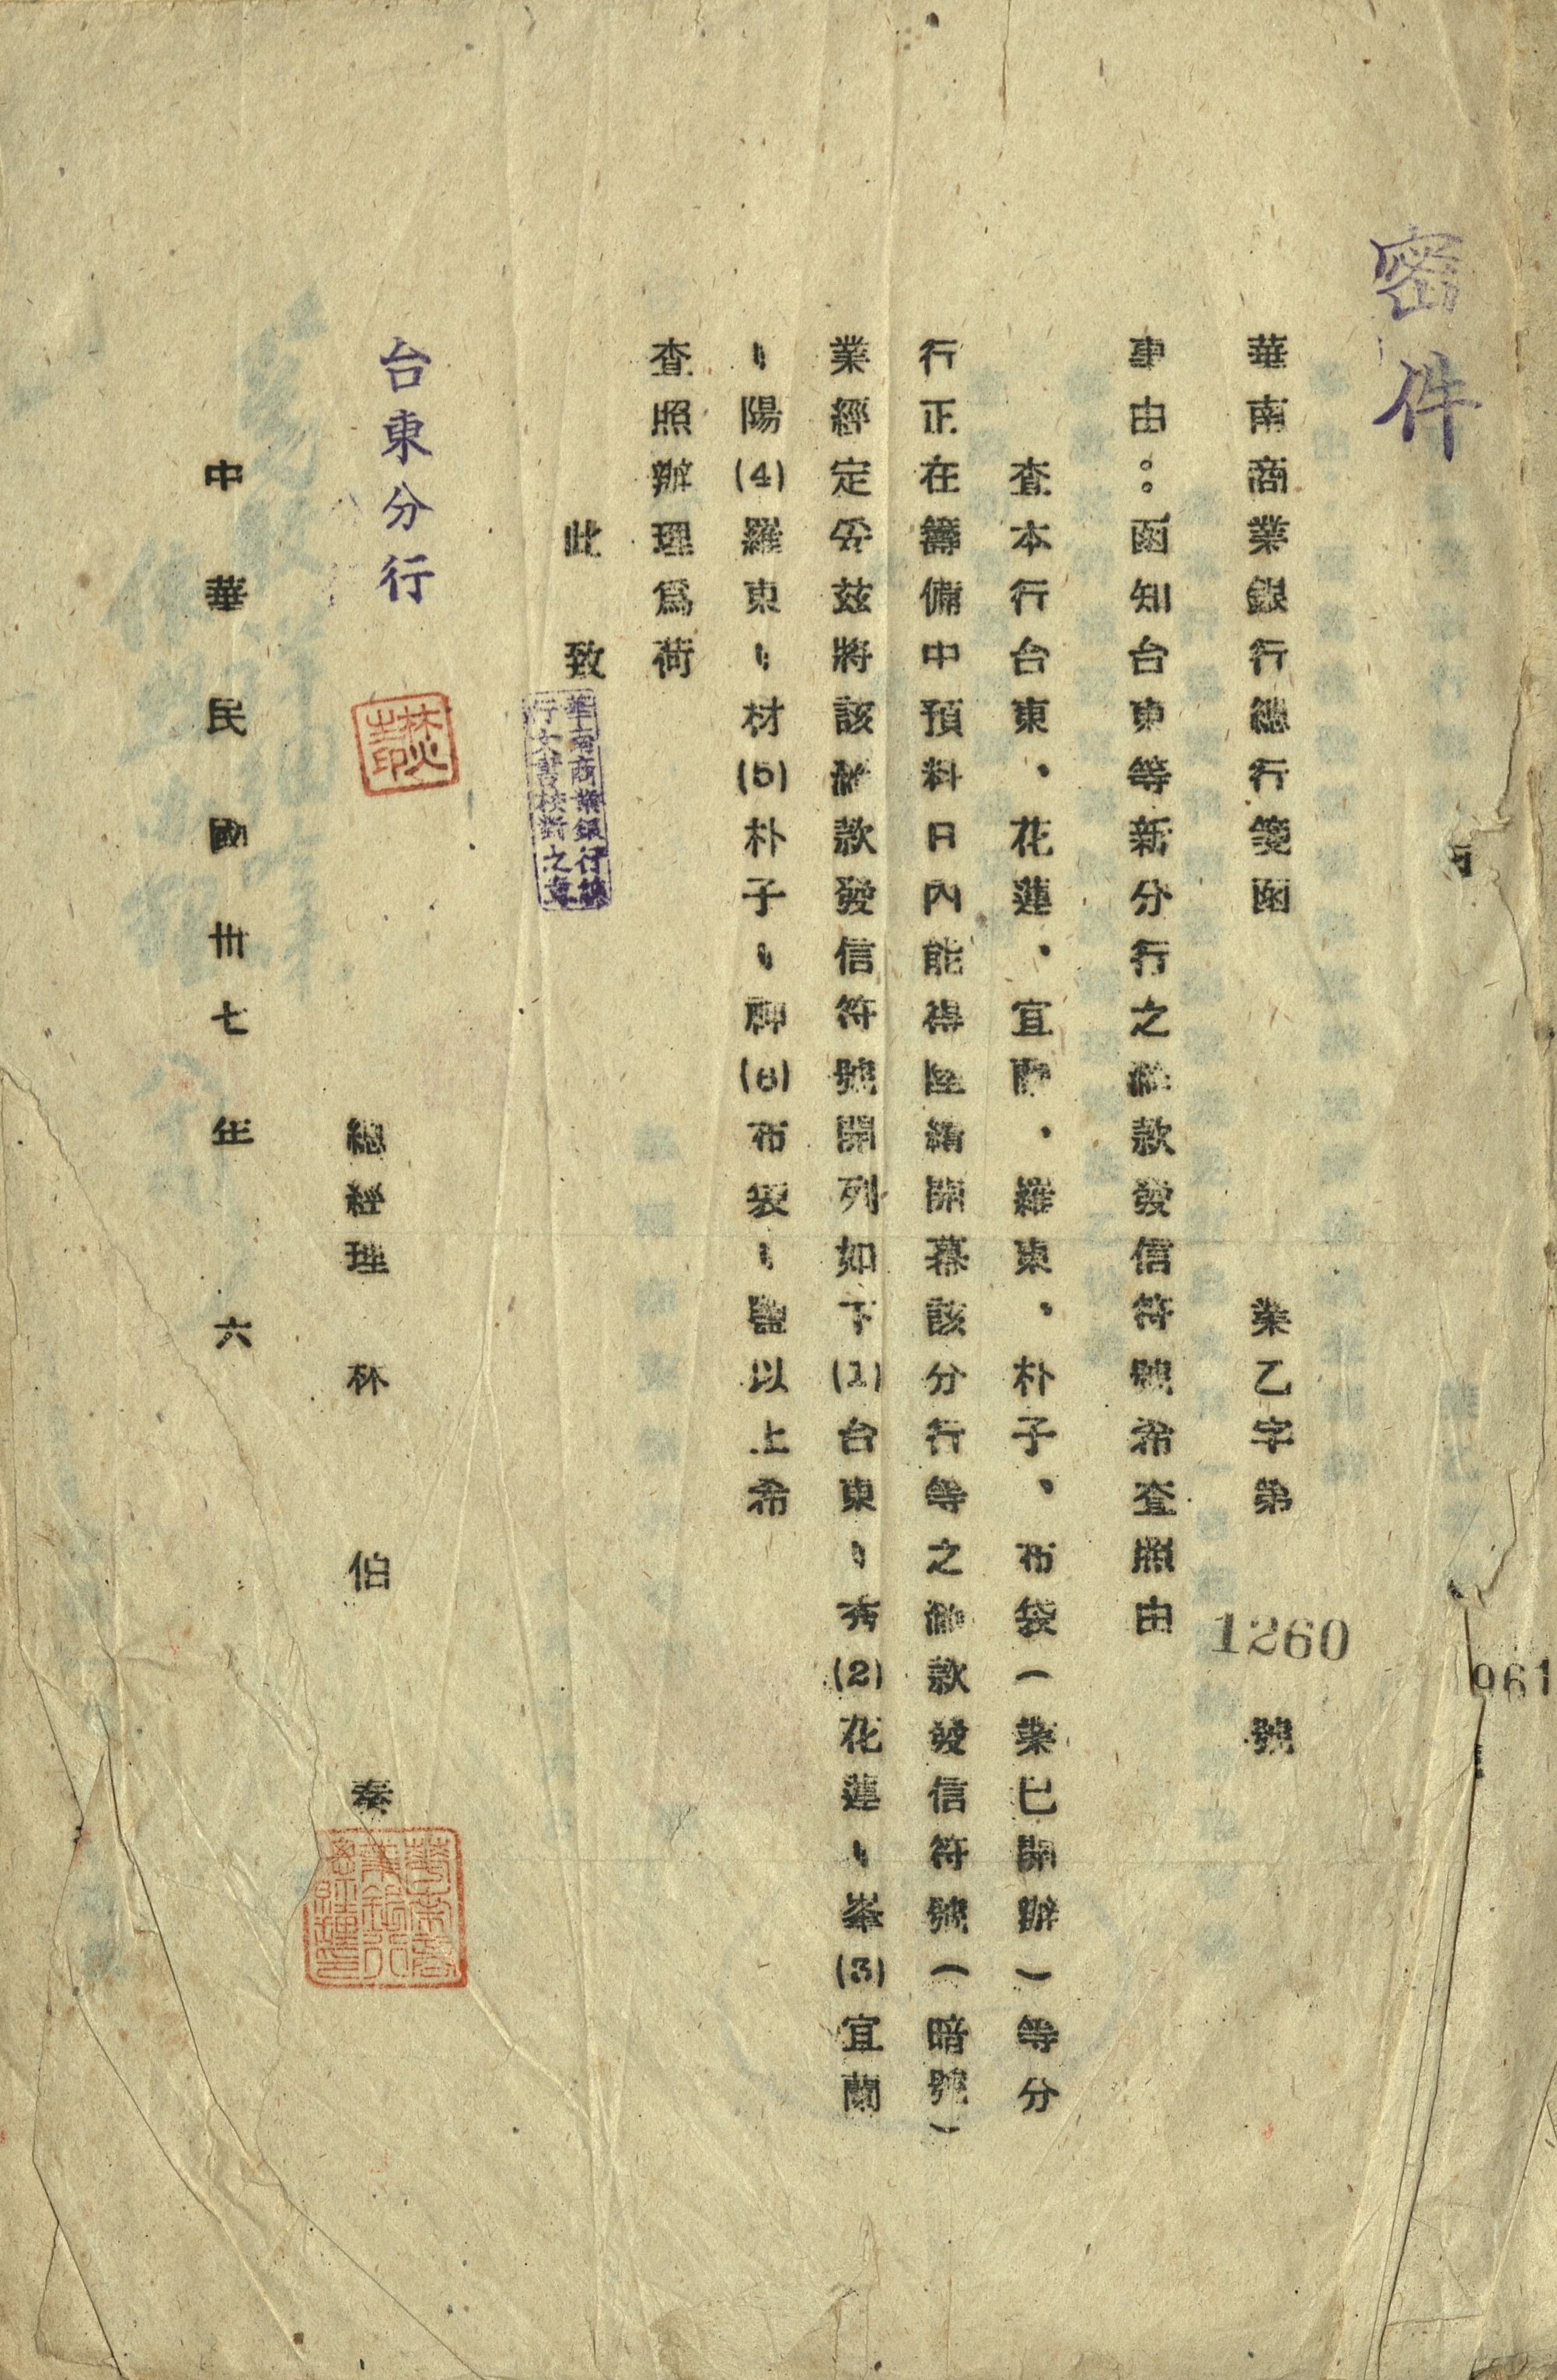 密件
華南商業銀行總行箋函 業乙字第 1260 號
事由：函知台東等新分行之儲款發信符號希查照由
查本行台東、花蓮、宜蘭、羅東、朴子、布袋（業已開辦）等分
行正在籌備中預料日內能得陸續開幕該分行等之儲款發信符號（暗號）
業經定妥茲將該儲款發信符號開列如下(1)台東〻秀(2)花蓮〻峯(3)宜蘭
〻陽(4)羅東〻材(5)朴子〻腳(6)布袋〻鹽以上希
查照辦理為荷
此致
華南商業銀行總
行文書校對之章
台東分行
總經理 林伯奏
華南商業銀行總經理印
中華民國卅七年六
961